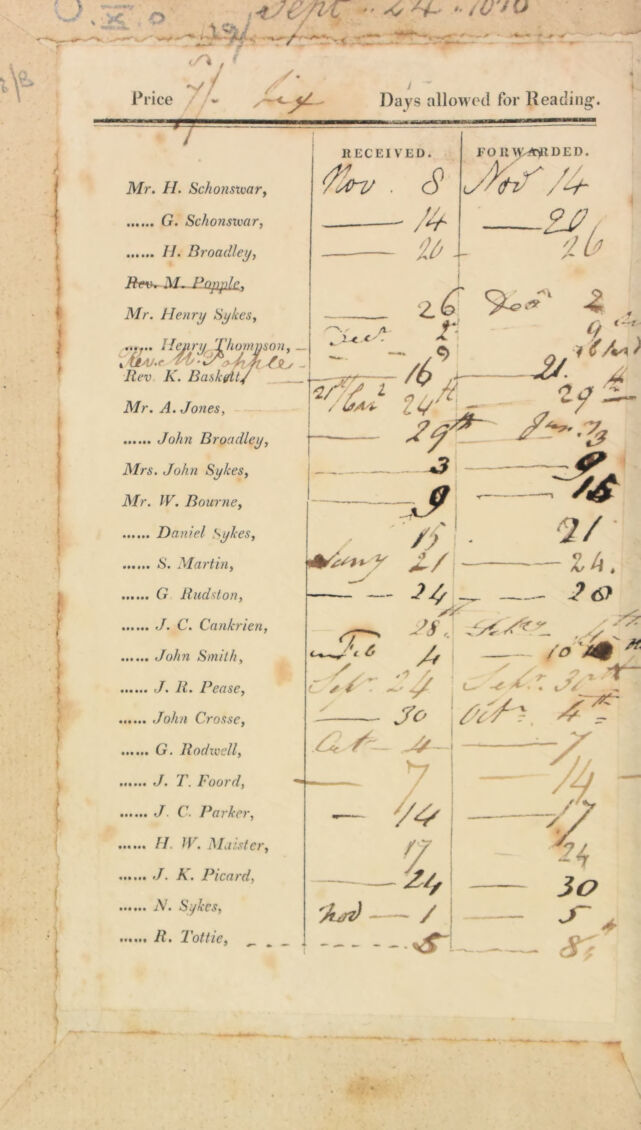 Sept. 24.
Price 7/. Six Days allowed for Reading.
RECEIVED. FORWARDED.
Mr. H. Schonswar, Nov. 8 Nov 14
...... G. Schonswar, — 14 — 20
...... H. Broadley, — 20 - 26
Rev. M. Popple,
Mr. Henry Sykes, — 26 Decr 2
...... Henry Thompson, — Decr. 2 — 9
Rev. M. Popple — - - 9
Rev. K. Baskett, — 16 21.
Mr. A. Jones, 24th 29th
...... John Broadley, — 29th — Jan. 3
Mrs. John Sykes, — 3 — 9
Mr. W. Bourne, — 9 — 15
...... Daniel Sykes, 15 . 21
...... S. Martin, Jany 21 — 24.
...... G. Rudston, — — 24 — — 28
...... J. C. Cankrien, 28
...... John Smith, Feb 4 — 10
...... J. R. Pease, Sepr. 24 Sepr. 30th
...... John Crosse, — 30 Octr. 4th
...... G. Rodwell, Oct — 4 — 7
...... J. T. Foord, — 7 — 14
...... J. C. Parker, — 14 — 17
...... H. W. Maister, 17 — 24
...... J. K. Picard, — 24 — 30
...... N. Sykes, Nov — 1 — 5
...... R. Tottie, - - - - - - - 5 — 8